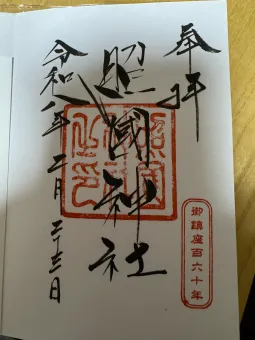 奉拝
照國神社
令和八年二月二十三日
御鎮座百六十年